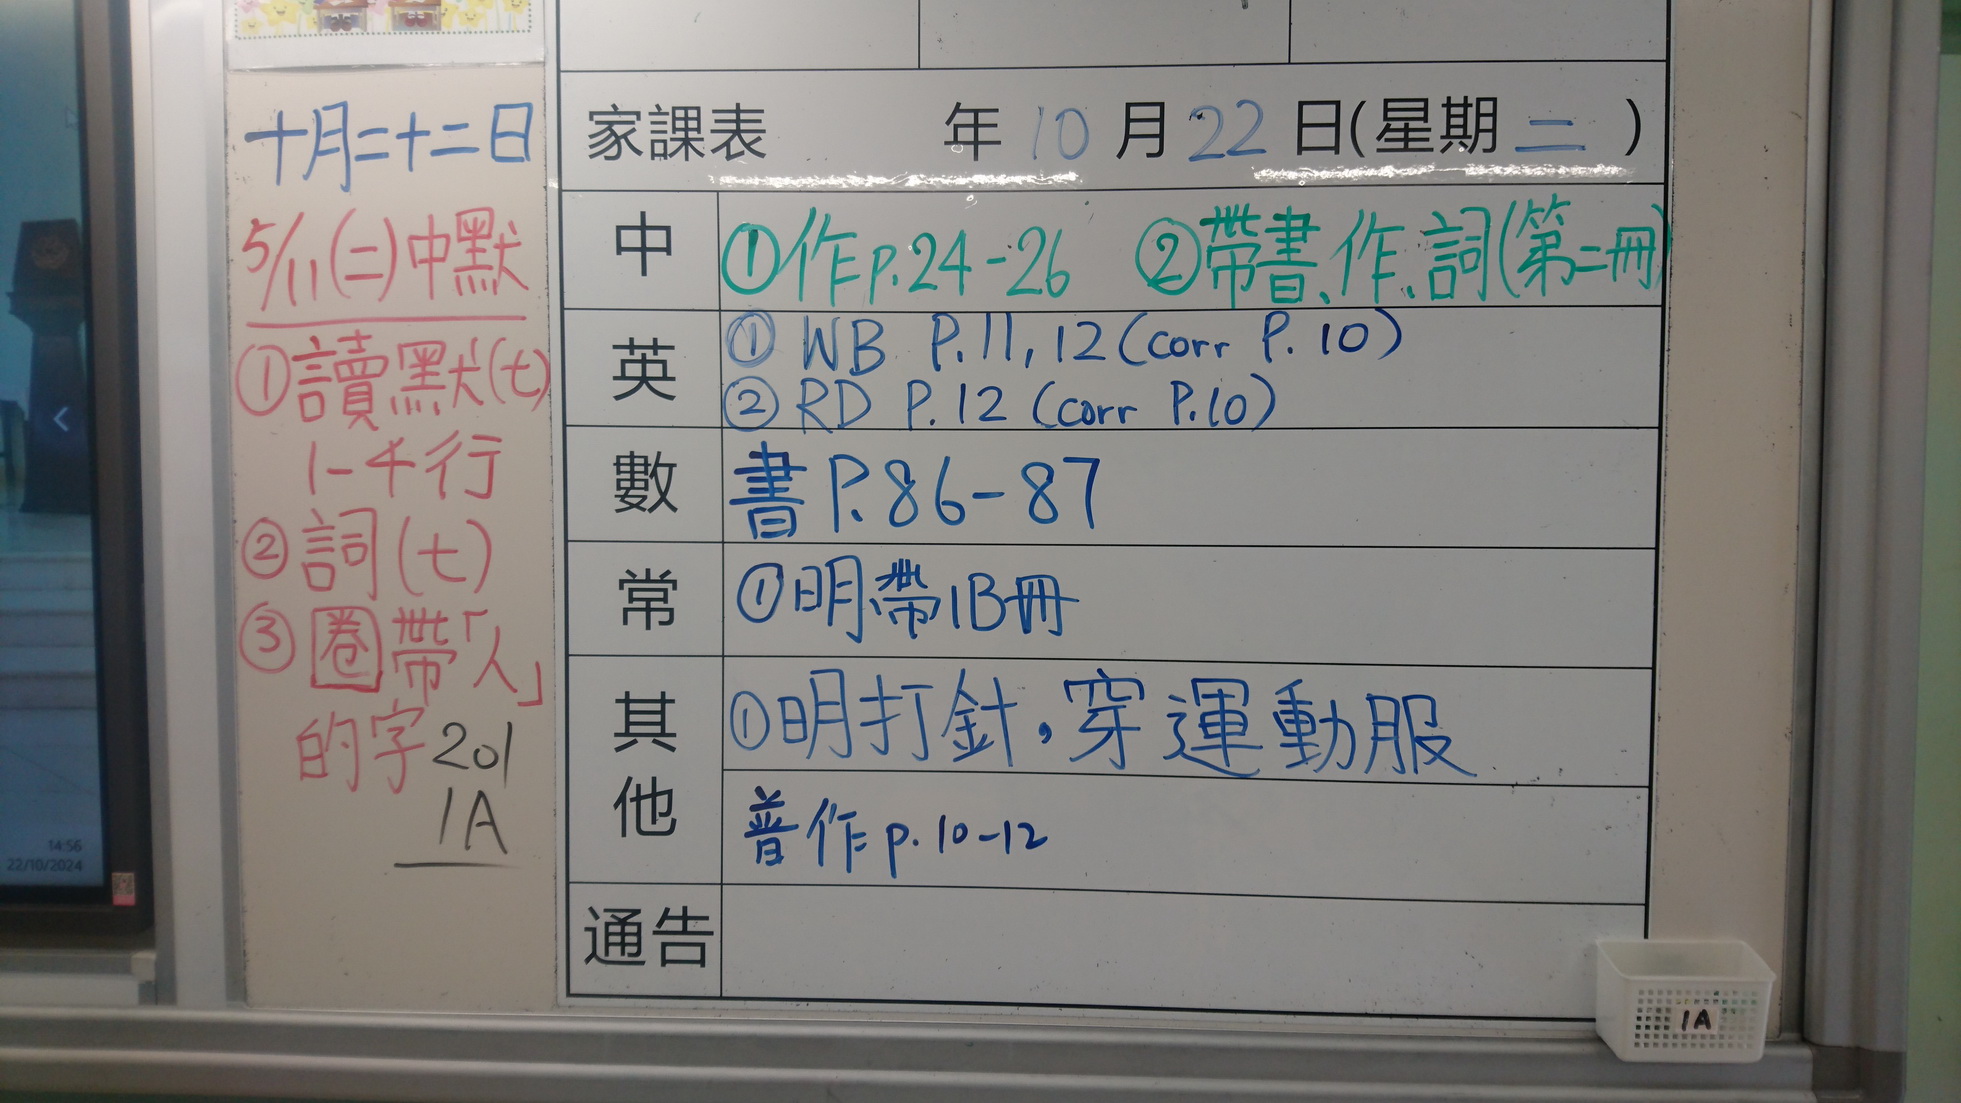 十月二十二日
5/11(二)中默
①讀默(七)
1-4行
②詞(七)
③圈帶「人」
的字
201
1A
家課表 年 10 月 22 日(星期 二 )
中 ①作p.24-26 ②帶書、作、詞(第二冊)
英 ① WB P.11, 12 (corr P.10)
② RD P.12 (corr P.10)
數 書 P.86-87
常 ①明帶1B冊
其他 ①明打針，穿運動服
普作 p.10-12
通告
14:56
22/10/2024
1A